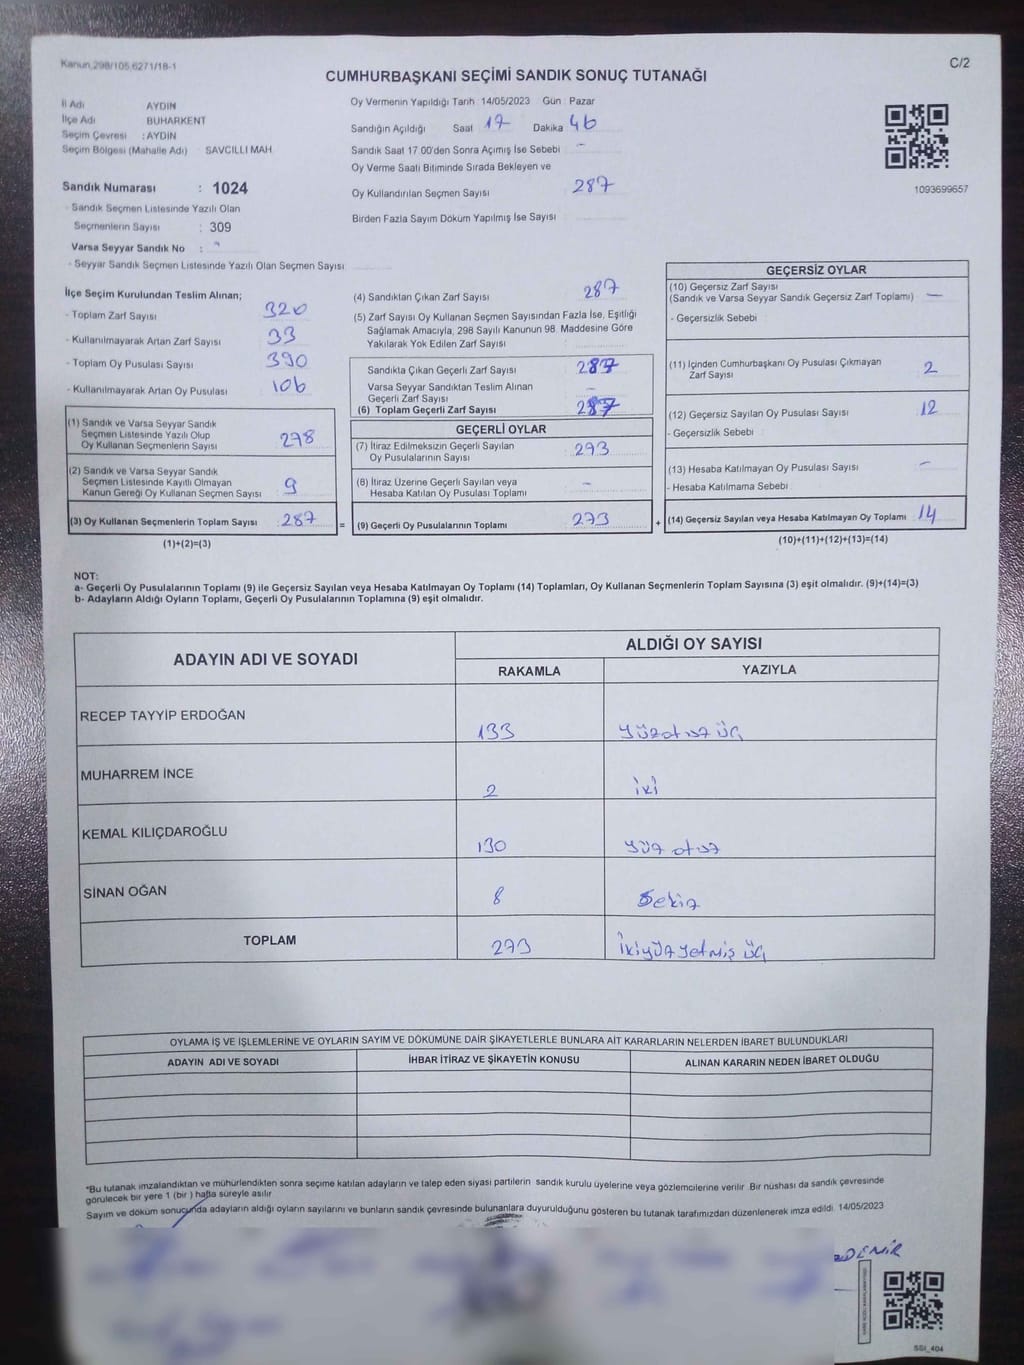 Kanun 298/105,6271/18-1
C/2
CUMHURBAŞKANI SEÇİMİ SANDIK SONUÇ TUTANAĞI
İl Adı AYDIN
İlçe Adı BUHARKENT
Seçim Çevresi : AYDIN
Seçim Bölgesi (Mahalle Adı) SAVCILLI MAH.
Sandık Numarası : 1024
- Sandık Seçmen Listesinde Yazılı Olan
Seçmenlerin Sayısı : 309
Varsa Seyyar Sandık No : -
- Seyyar Sandık Seçmen Listesinde Yazılı Olan Seçmen Sayısı
Oy Vermenin Yapıldığı Tarih 14/05/2023 Gün Pazar
Sandığın Açıldığı Saat 17 Dakika 46
Sandık Saat 17.00'den Sonra Açımış İse Sebebi -
Oy Verme Saati Bitiminde Sırada Bekleyen ve
Oy Kullandırılan Seçmen Sayısı 287
Birden Fazla Sayım Döküm Yapılmış İse Sayısı
1093699657
İlçe Seçim Kurulundan Teslim Alınan;
- Toplam Zarf Sayısı 320
- Kullanılmayarak Artan Zarf Sayısı 33
- Toplam Oy Pusulası Sayısı 390
- Kullanılmayarak Artan Oy Pusulası 106
(1) Sandık ve Varsa Seyyar Sandık
Seçmen Listesinde Yazılı Olup
Oy Kullanan Seçmenlerin Sayısı 278
(2) Sandık ve Varsa Seyyar Sandık
Seçmen Listesinde Kayıtlı Olmayan
Kanun Gereği Oy Kullanan Seçmen Sayısı 9
(3) Oy Kullanan Seçmenlerin Toplam Sayısı 287
(1)+(2)=(3)
=
(4) Sandıktan Çıkan Zarf Sayısı 287
(5) Zarf Sayısı Oy Kullanan Seçmen Sayısından Fazla İse, Eşitliği
Sağlamak Amacıyla, 298 Sayılı Kanunun 98. Maddesine Göre
Yakılarak Yok Edilen Zarf Sayısı
Sandıkta Çıkan Geçerli Zarf Sayısı 287
Varsa Seyyar Sandıktan Teslim Alınan
Geçerli Zarf Sayısı -
(6) Toplam Geçerli Zarf Sayısı 287
GEÇERLİ OYLAR
(7) İtiraz Edilmeksizin Geçerli Sayılan
Oy Pusulalarının Sayısı 273
(8) İtiraz Üzerine Geçerli Sayılan veya
Hesaba Katılan Oy Pusulası Toplamı -
(9) Geçerli Oy Pusulalarının Toplamı 273
+
GEÇERSİZ OYLAR
(10) Geçersiz Zarf Sayısı
(Sandık ve Varsa Seyyar Sandık Geçersiz Zarf Toplamı) -
- Geçersizlik Sebebi
(11) İçinden Cumhurbaşkanı Oy Pusulası Çıkmayan
Zarf Sayısı 2
(12) Geçersiz Sayılan Oy Pusulası Sayısı 12
- Geçersizlik Sebebi
(13) Hesaba Katılmayan Oy Pusulası Sayısı -
- Hesaba Katılmama Sebebi
(14) Geçersiz Sayılan veya Hesaba Katılmayan Oy Toplamı 14
(10)+(11)+(12)+(13)=(14)
NOT:
a- Geçerli Oy Pusulalarının Toplamı (9) ile Geçersiz Sayılan veya Hesaba Katılmayan Oy Toplamı (14) Toplamları, Oy Kullanan Seçmenlerin Toplam Sayısına (3) eşit olmalıdır. (9)+(14)=(3)
b- Adayların Aldığı Oyların Toplamı, Geçerli Oy Pusulalarının Toplamına (9) eşit olmalıdır.
ADAYIN ADI VE SOYADI ALDIĞI OY SAYISI
RAKAMLA YAZIYLA
RECEP TAYYİP ERDOĞAN 133 yüzotuz üç
MUHARREM İNCE 2 iki
KEMAL KILIÇDAROĞLU 130 yüz otuz
SİNAN OĞAN 8 Sekiz
TOPLAM 273 ikiyüz yetmiş üç
OYLAMA İŞ VE İŞLEMLERİNE VE OYLARIN SAYIM VE DÖKÜMÜNE DAİR ŞİKAYETLERLE BUNLARA AİT KARARLARIN NELERDEN İBARET BULUNDUKLARI
ADAYIN ADI VE SOYADI İHBAR İTİRAZ VE ŞİKAYETİN KONUSU ALINAN KARARIN NEDEN İBARET OLDUĞU
*Bu tutanak imzalandıktan ve mühürlendikten sonra seçime katılan adayların ve talep eden siyasi partilerin sandık kurulu üyelerine veya gözlemcilerine verilir. Bir nüshası da sandık çevresinde
görülecek bir yere 1 (bir ) hafta süreyle asılır
Sayım ve döküm sonucunda adayların aldığı oyların sayılarını ve bunların sandık çevresinde bulunanlara duyurulduğunu gösteren bu tutanak tarafımızdan düzenlenerek imza edildi. 14/05/2023
DENİR
SSI_404